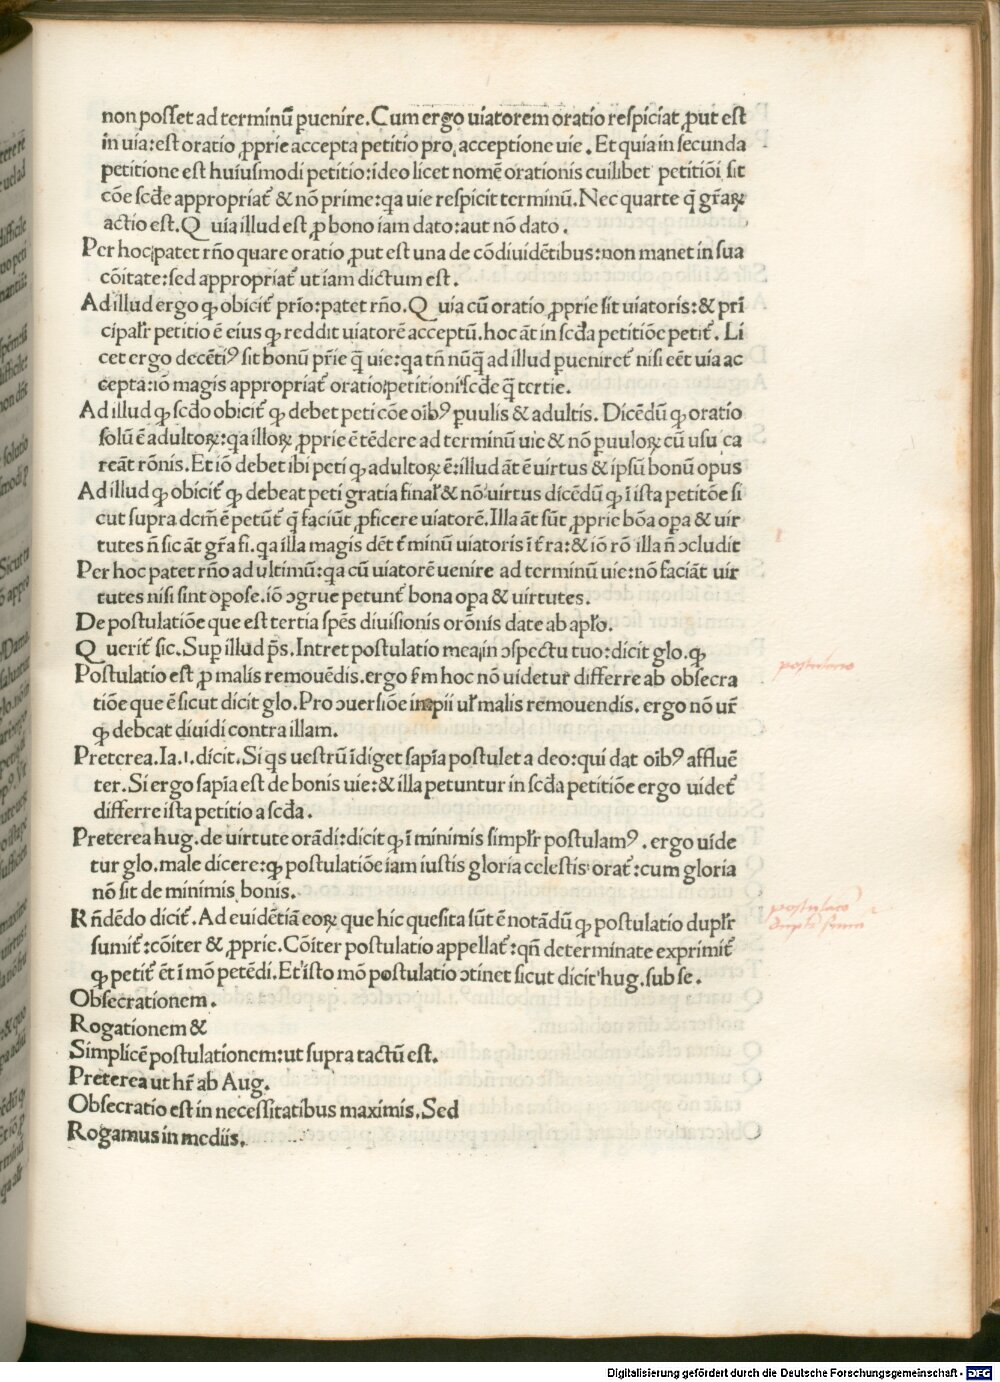 non posset ad terminū ꝑuenire. Cum ergo uiatorem oratio respiciat ꝓut est
in uia: est oratio ꝓprie accepta petitio pro acceptione uie. Et quia in secunda
petitione est huiusmodi petitio: ideo licet nomē orationis cuilibet petitiōi sit
cōe scđe appropriat᷑ & nō prime: qa uie respicit terminū. Nec quarte q̄ gr̄aꝝ
actio est. Quia illud est ꝓ bono iam dato: aut nō dato.
Per hoc patet rn̄o quare oratio ꝓut est una de cōdiuidētibus: non manet in sua
cōitate: sed appropriat᷑ ut iam dictum est.
Ad illud ergo ꝙ obicit᷑ prīo: patet rn̄o. Quia cū oratio ꝓprie sit uiatoris: & pri
cipalr̄ petitio ē eius ꝙ reddit uiatorē acceptū. hoc āt in scđa petitiōe petit᷑. Li
cet ergo decētiꝰ sit bonū pr̄ie q̄ uie: qa tn̄ nūq̄ ad illud ꝑueniret᷑ nisi eēt uia ac
cepta: iō magis appropriat᷑ oratio petitioni scđe q̄ tertie.
Ad illud ꝙ scđo obicit᷑ ꝙ debet peti cōe oībꝰ ꝑuulis & adultis. Dicēdū ꝙ oratio
solū ē adultoꝝ: qa illoꝝ ꝓprie ē tēdere ad terminū uie & nō ꝑuuloꝝ cū usu ca
reāt rōnis. Et iō debet ibi peti ꝙ adultoꝝ ē: illud āt ē uirtus & ipsū bonū opus
Ad illud ꝙ obicit᷑ ꝙ debeat peti gratia final̄ & nō uirtus dicēdū ꝙ ī ista petitōe si
cut supra dcm̄ ē petūt᷑ q̄ faciūt ꝓficere uiatorē. Illa āt sūt ꝓprie bōa oꝑa & uir
tutes n̄ sic āt gr̄a fi. qa illa magis dēt t᷑minū uiatoris ī t᷑ra: & iō rō illa n̄ ↄcludit
Per hoc patet rn̄o ad ultimū: qa cū uiatorē uenire ad terminū uie: nō faciāt uir
tutes nisi sint oꝑose. iō ↄgrue petunt᷑ bona oꝑa & uirtutes.
De postulatiōe que est tertia sp̄es diuisionis orōnis date ab aplo.
Querit᷑ sic. Suꝑ illud p̄s. Intret postulatio mea in ↄspectu tuo: dicit glo. ꝙ
Postulatio est ꝓ malis remouēdis. ergo ẜm hoc nō uidetur differre ab obsecra
tiōe que ē sicut dicit glo. Pro ↄuersiōe impii ul̄ malis remouendis. ergo nō ur̄
ꝙ debeat diuidi contra illam.
Preterea. Ia. 1. dicit. Si qs uestrū īdiget sapīa postulet a deo: qui dat oībꝰ affluē
ter. Si ergo sapīa est de bonis uie: & illa petuntur in scđa petitiōe ergo uidet᷑
differre ista petitio a scđa.
Preterea hug. de uirtute orādi: dicit ꝙ ī minimis simplr̄ postulamꝰ. ergo uide
tur glo. male dicere: ꝙ postulatiōe iam iustis gloria celestis orat᷑: cum gloria
nō sit de minimis bonis.
Rn̄dēdo dicit᷑. Ad euidētiā eoꝝ que hic quesita sūt ē notādū ꝙ postulatio duplr̄
sumit᷑: cōiter & ꝓprie. Cōiter postulatio appellat᷑: qn̄ determinate exprimit᷑
ꝙ petit᷑ ēt ī mō petēdi. Et isto mō postulatio ↄtinet sicut dicit hug. sub se.
Obsecrationem.
Rogationem &
Simplicē postulationem: ut supra tactū est.
Preterea ut hr̄ ab Aug.
Obsecratio est in necessitatibus maximis. Sed
Rogamus in mediis.
postulatio
postulatio
Digitalisierung gefördert durch die Deutsche Forschungsgemeinschaft - DFG